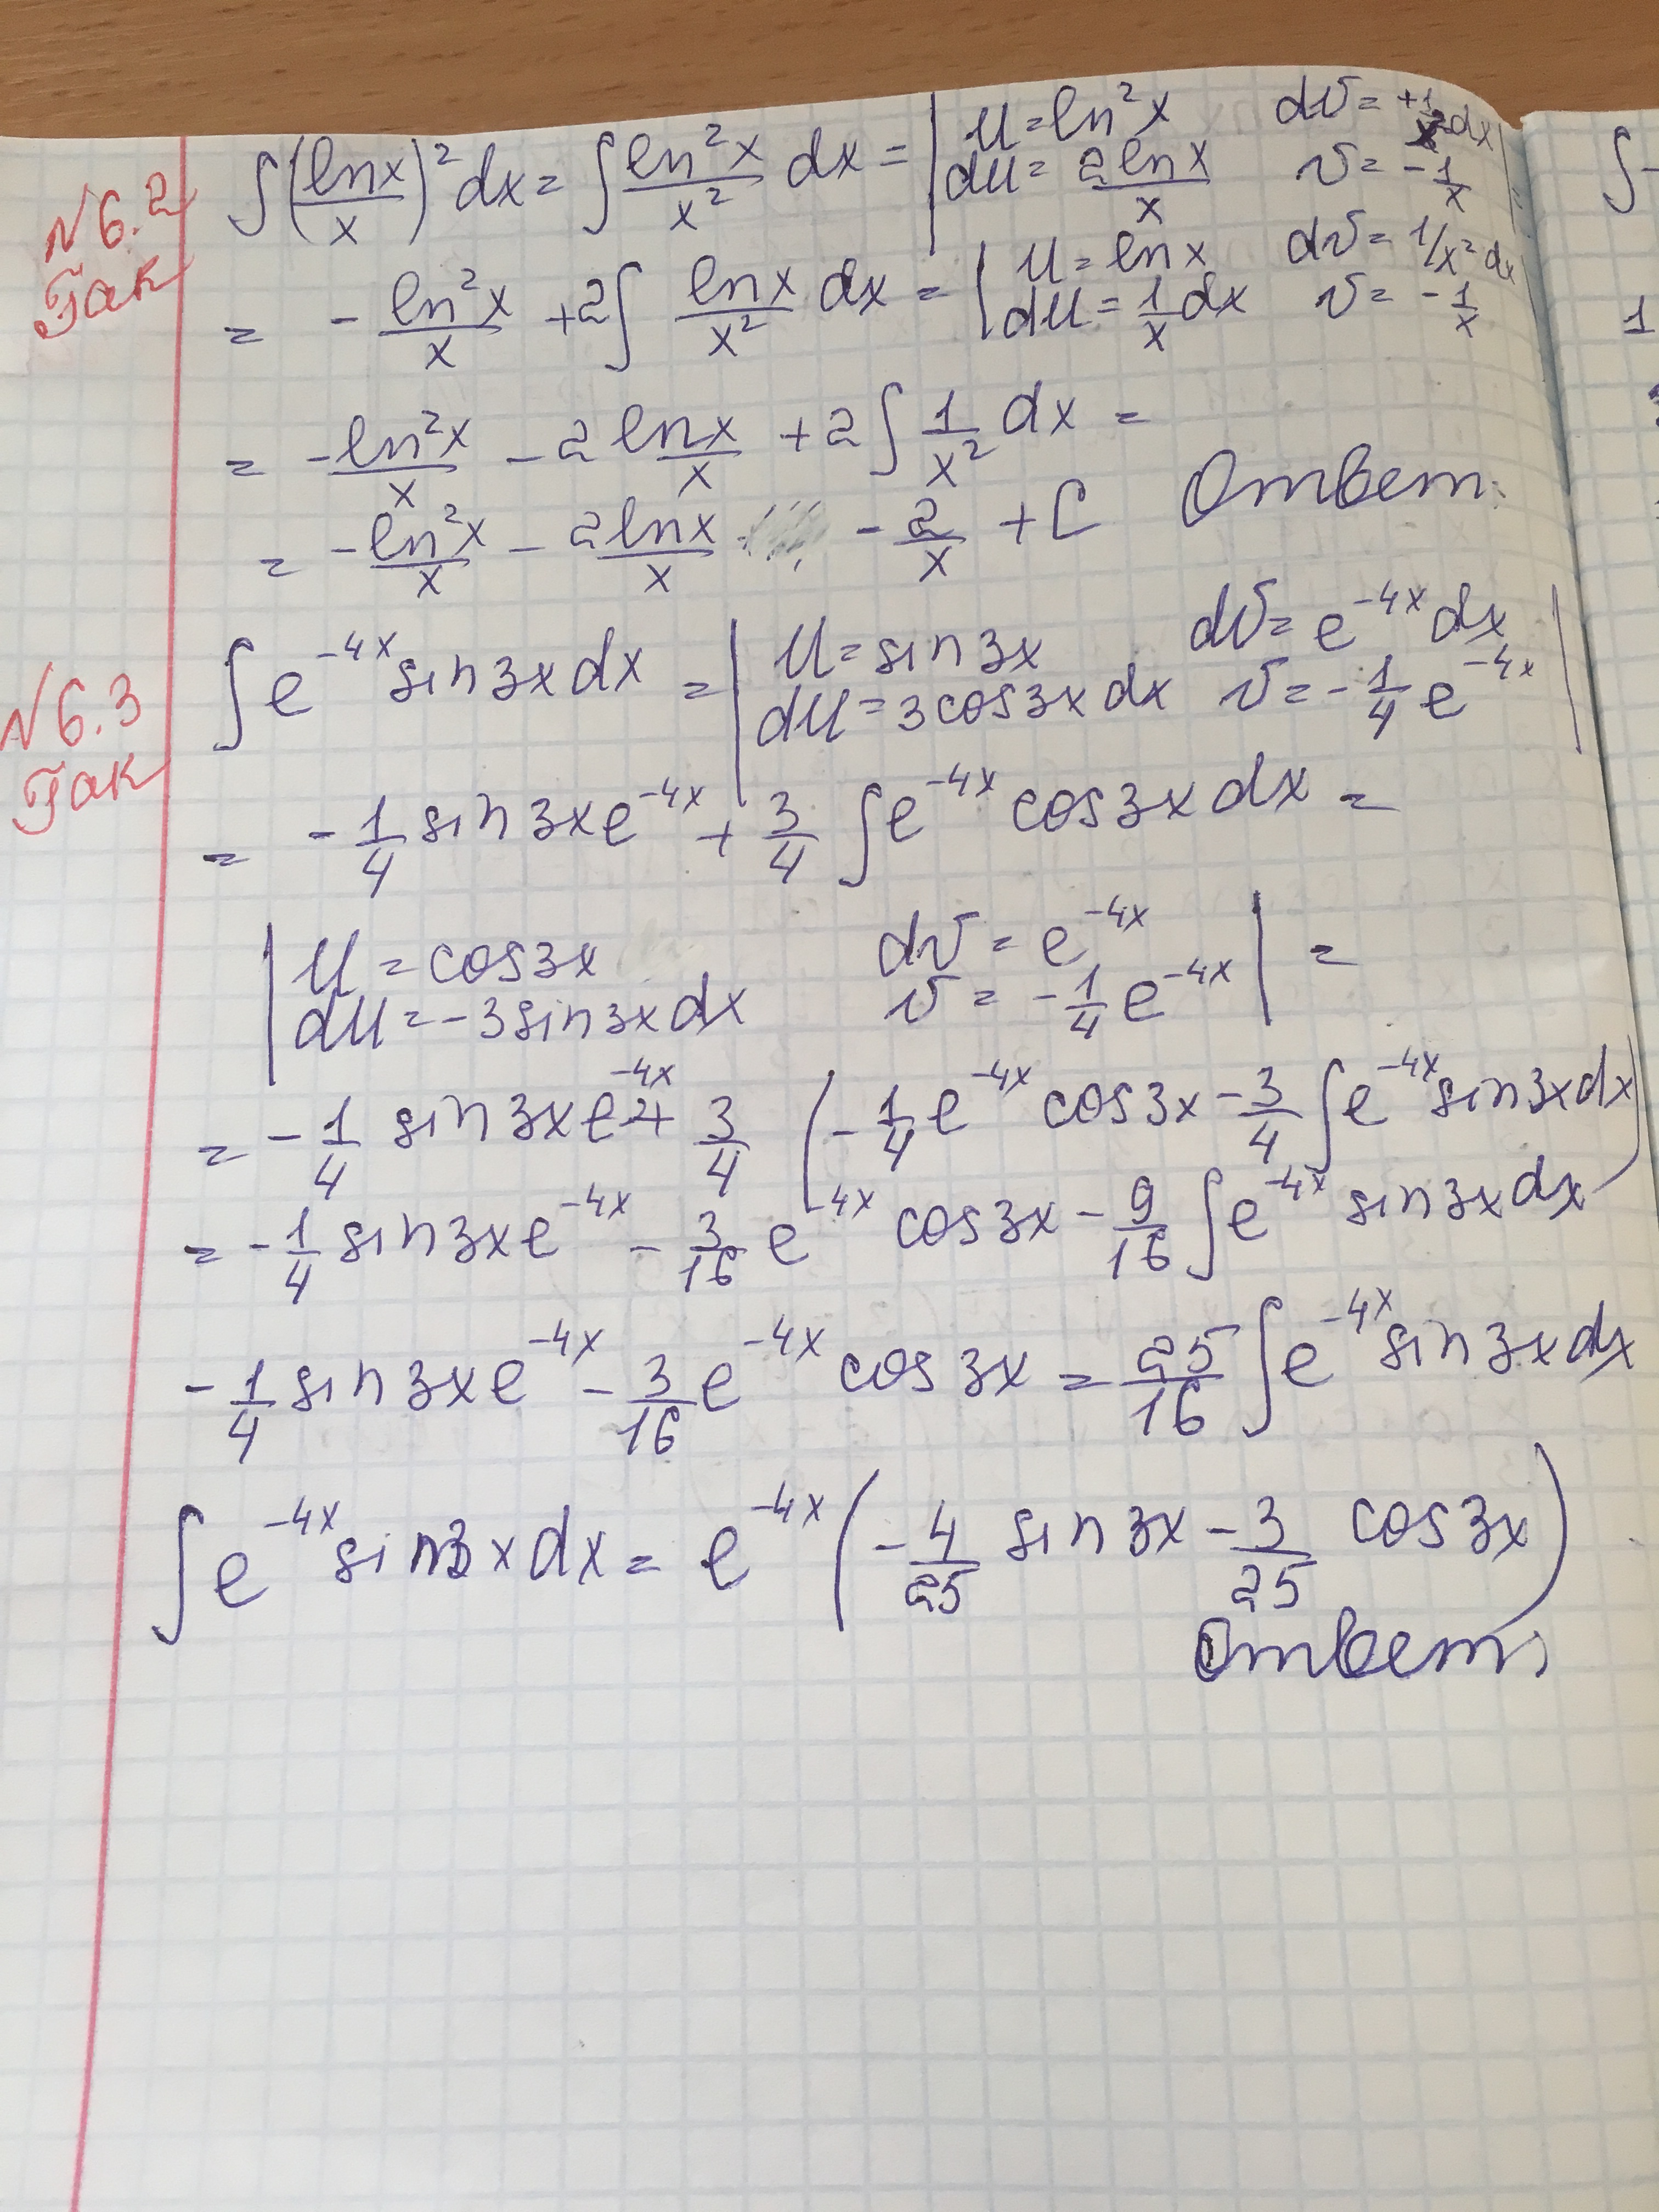 N6.2
Гак
∫(lnx/x)²dx = ∫ln²x/x² dx = | u=ln²x dv=+1/x²dx
du= 2lnx/x v= -1/x | =
= -ln²x/x +2∫ lnx/x² dx = | u=lnx dv= 1/x² dx
du= 1/x dx v= -1/x
= -ln²x/x - 2lnx/x + 2∫ 1/x² dx =
= -ln²x/x - 2lnx/x - 2/x + C Ответ.
N6.3
Гак
∫e^-4x sin3xdx = | u=sin3x dv=e^-4x dx
du=3cos3xdx v=-1/4 e^-4x |
= -1/4 sin3xe^-4x + 3/4 ∫e^-4x cos3xdx =
| u=cos3x dv = e^-4x
du=-3sin3xdx v = -1/4 e^-4x | =
= -1/4 sin3xe^-4x + 3/4 (-1/4 e^-4x cos3x - 3/4 ∫e^-4x sin3xdx)
= -1/4 sin3xe^-4x - 3/16 e^-4x cos3x - 9/16 ∫e^-4x sin3xdx
-1/4 sin3xe^-4x - 3/16 e^-4x cos3x = 25/16 ∫e^-4x sin3xdx
∫e^-4x sin3xdx = e^-4x (-4/25 sin3x - 3/25 cos3x)
Ответ.
∫-
1